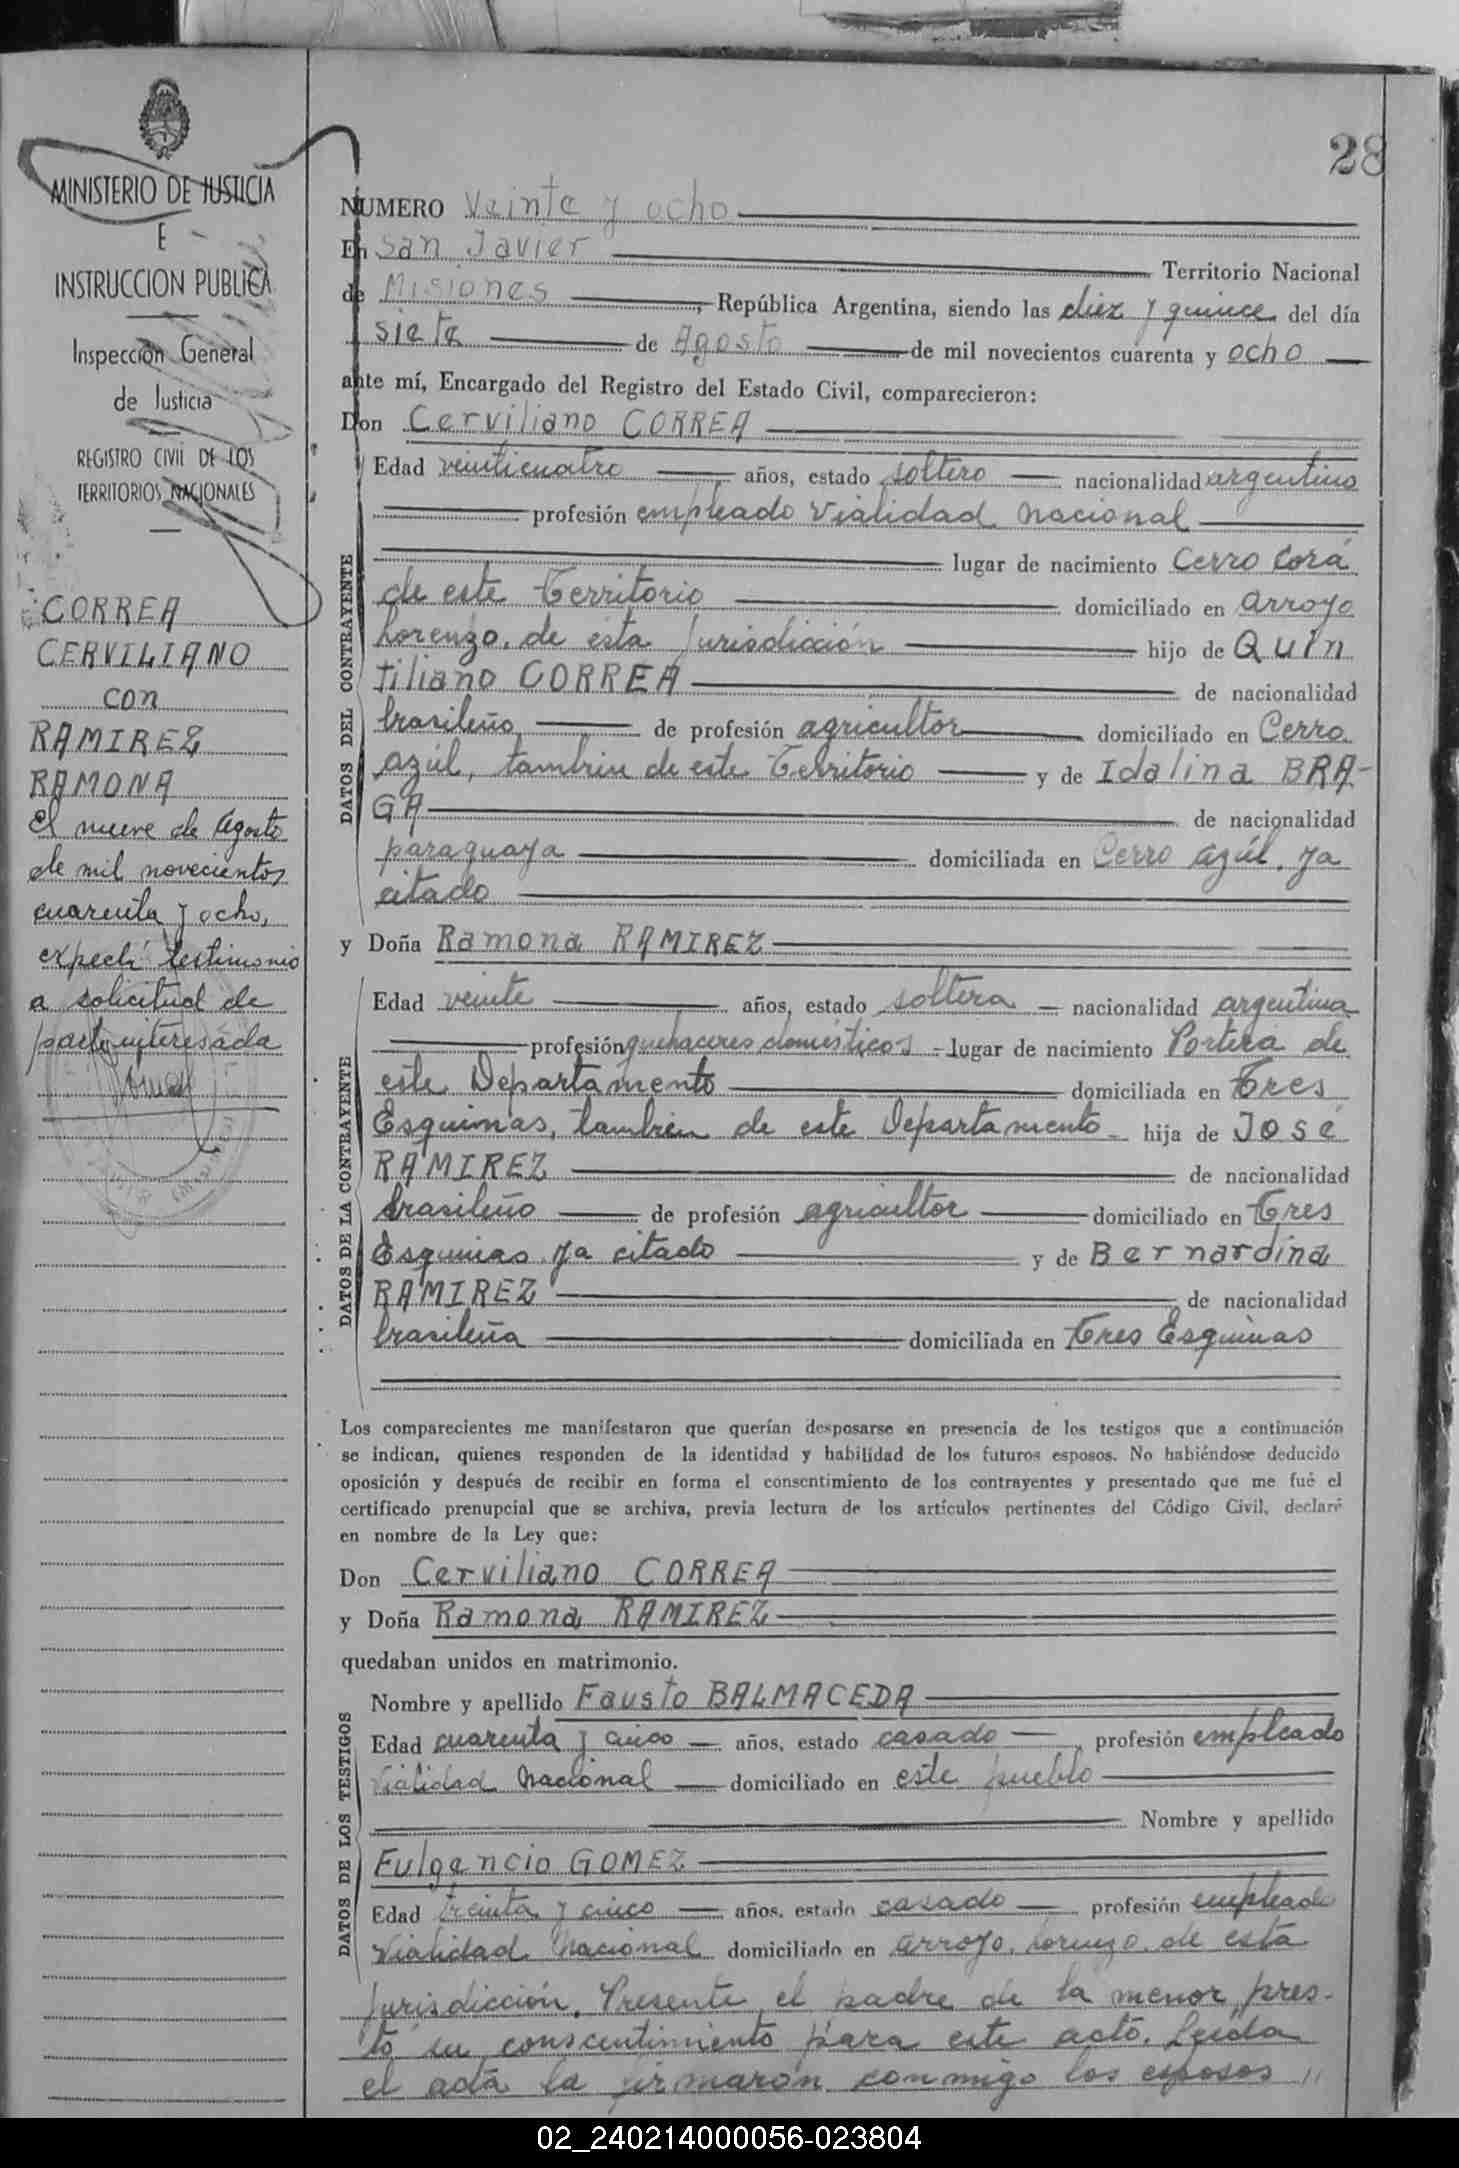 28
MINISTERIO DE JUSTICIA
E
INSTRUCCION PUBLICA
Inspección General
de Justicia
REGISTRO CIVIL DE LOS
TERRITORIOS NACIONALES
CORREA
CERVILIANO
con
RAMIREZ
RAMONA
El nueve de Agosto
de mil novecientos
cuarenta y ocho,
expedí testimonio
a solicitud de
parte interesada
NUMERO Veinte y ocho
En San Javier Territorio Nacional
de Misiones, República Argentina, siendo las diez y quince del día
siete de Agosto de mil novecientos cuarenta y ocho
ante mí, Encargado del Registro del Estado Civil, comparecieron:
Don Cerviliano CORREA
DATOS DEL CONTRAYENTE
Edad veinticuatro años, estado soltero nacionalidad argentino
profesión empleado Vialidad Nacional
lugar de nacimiento Cerro Corá
de este Territorio domiciliado en Arroyo
Lorenzo, de esta Jurisdicción hijo de QUIN
tiliano CORREA de nacionalidad
brasileño de profesión agricultor domiciliado en Cerro
azúl, tambien de este Territorio y de Idalina BRA-
GA de nacionalidad
paraguaya domiciliada en Cerro azúl, ya
citado
y Doña Ramona RAMIREZ
DATOS DE LA CONTRAYENTE
Edad veinte años, estado soltera nacionalidad argentina
profesión quehaceres domésticos lugar de nacimiento Portera de
este Departamento domiciliada en Tres
Esquinas, tambien de este Departamento hija de José
RAMIREZ de nacionalidad
brasileño de profesión agricultor domiciliado en Tres
Esquinas ya citado y de Bernardina
RAMIREZ de nacionalidad
brasileña domiciliada en Tres Esquinas
Los comparecientes me manifestaron que querían desposarse en presencia de los testigos que a continuación
se indican, quienes responden de la identidad y habilidad de los futuros esposos. No habiéndose deducido
oposición y después de recibir en forma el consentimiento de los contrayentes y presentado que me fué el
certificado prenupcial que se archiva, previa lectura de los artículos pertinentes del Código Civil, declaré
en nombre de la Ley que:
Don Cerviliano CORREA
y Doña Ramona RAMIREZ
quedaban unidos en matrimonio.
DATOS DE LOS TESTIGOS
Nombre y apellido Fausto BALMACEDA
Edad cuarenta y cinco años, estado casado, profesión empleado
Vialidad Nacional domiciliado en este pueblo
Nombre y apellido
Fulgencio GOMEZ
Edad treinta y cinco años, estado casado profesión empleado
Vialidad Nacional domiciliado en Arroyo Lorenzo de esta
Jurisdicción. Presente el padre de la menor, pres-
tó su consentimiento para este acto. Leída
el acta la firmaron conmigo los esposos //
02_240214000056-023804